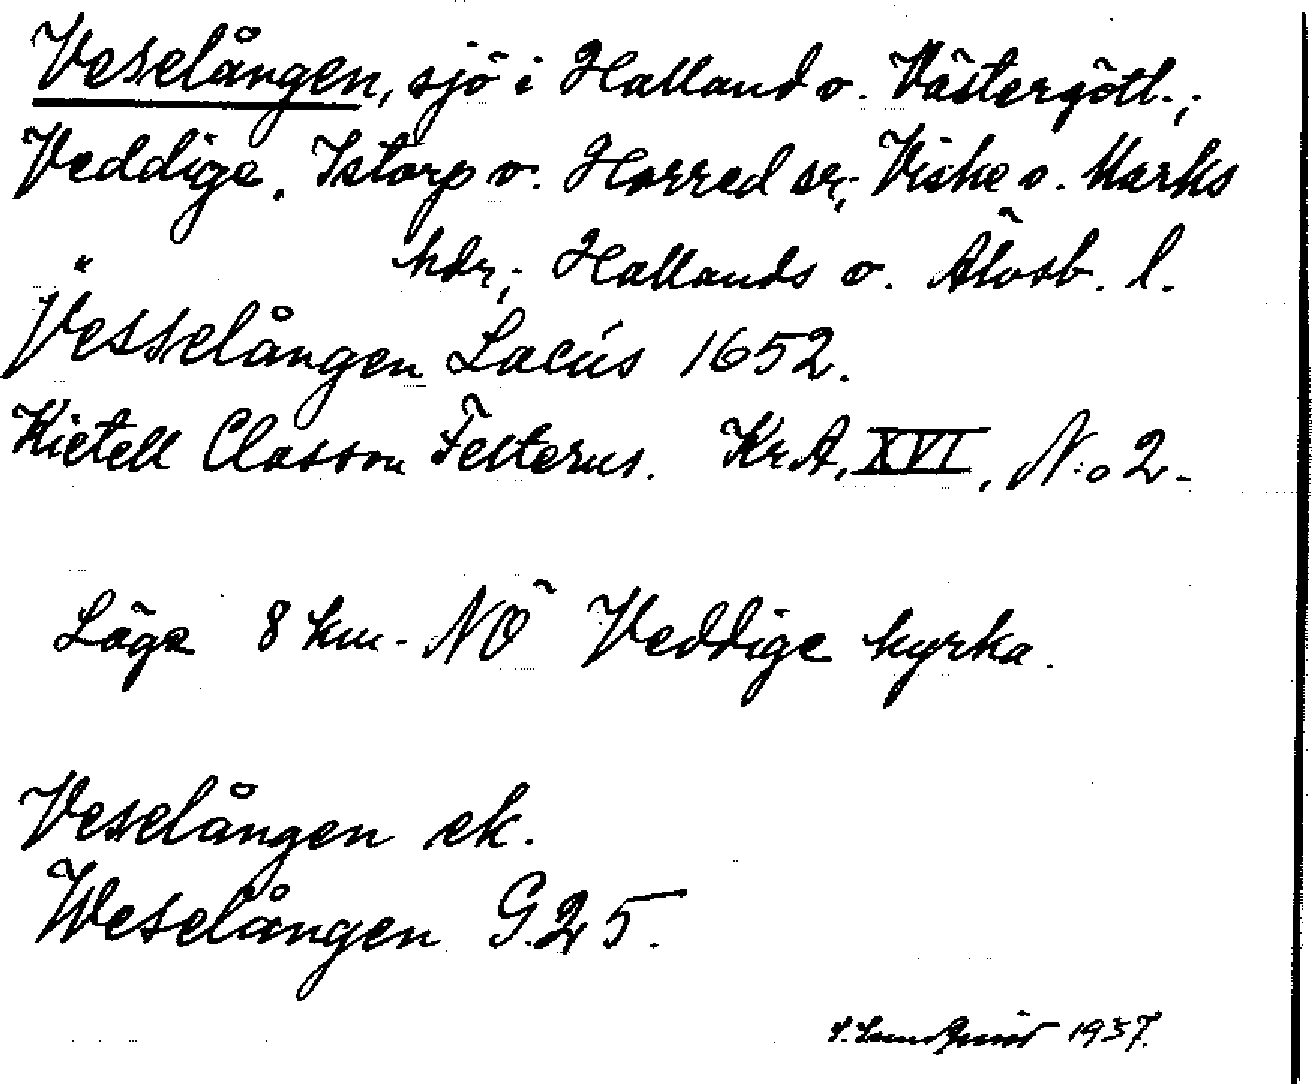 Veselången, sjö i Halland o. Västergötl.;
Veddige, Istorp o. Horred sr; Viske o. Marks
hdr; Hallands o. Älvsb. l.
"
Vesselången Lacus 1652.
Kietell Classon Felterus. KrA, XVI, N:o 2.
Läge 8 km. NÖ Veddige kyrka.
Veselången ek.
Weselången G.25.
S. Lundqvist 1937.